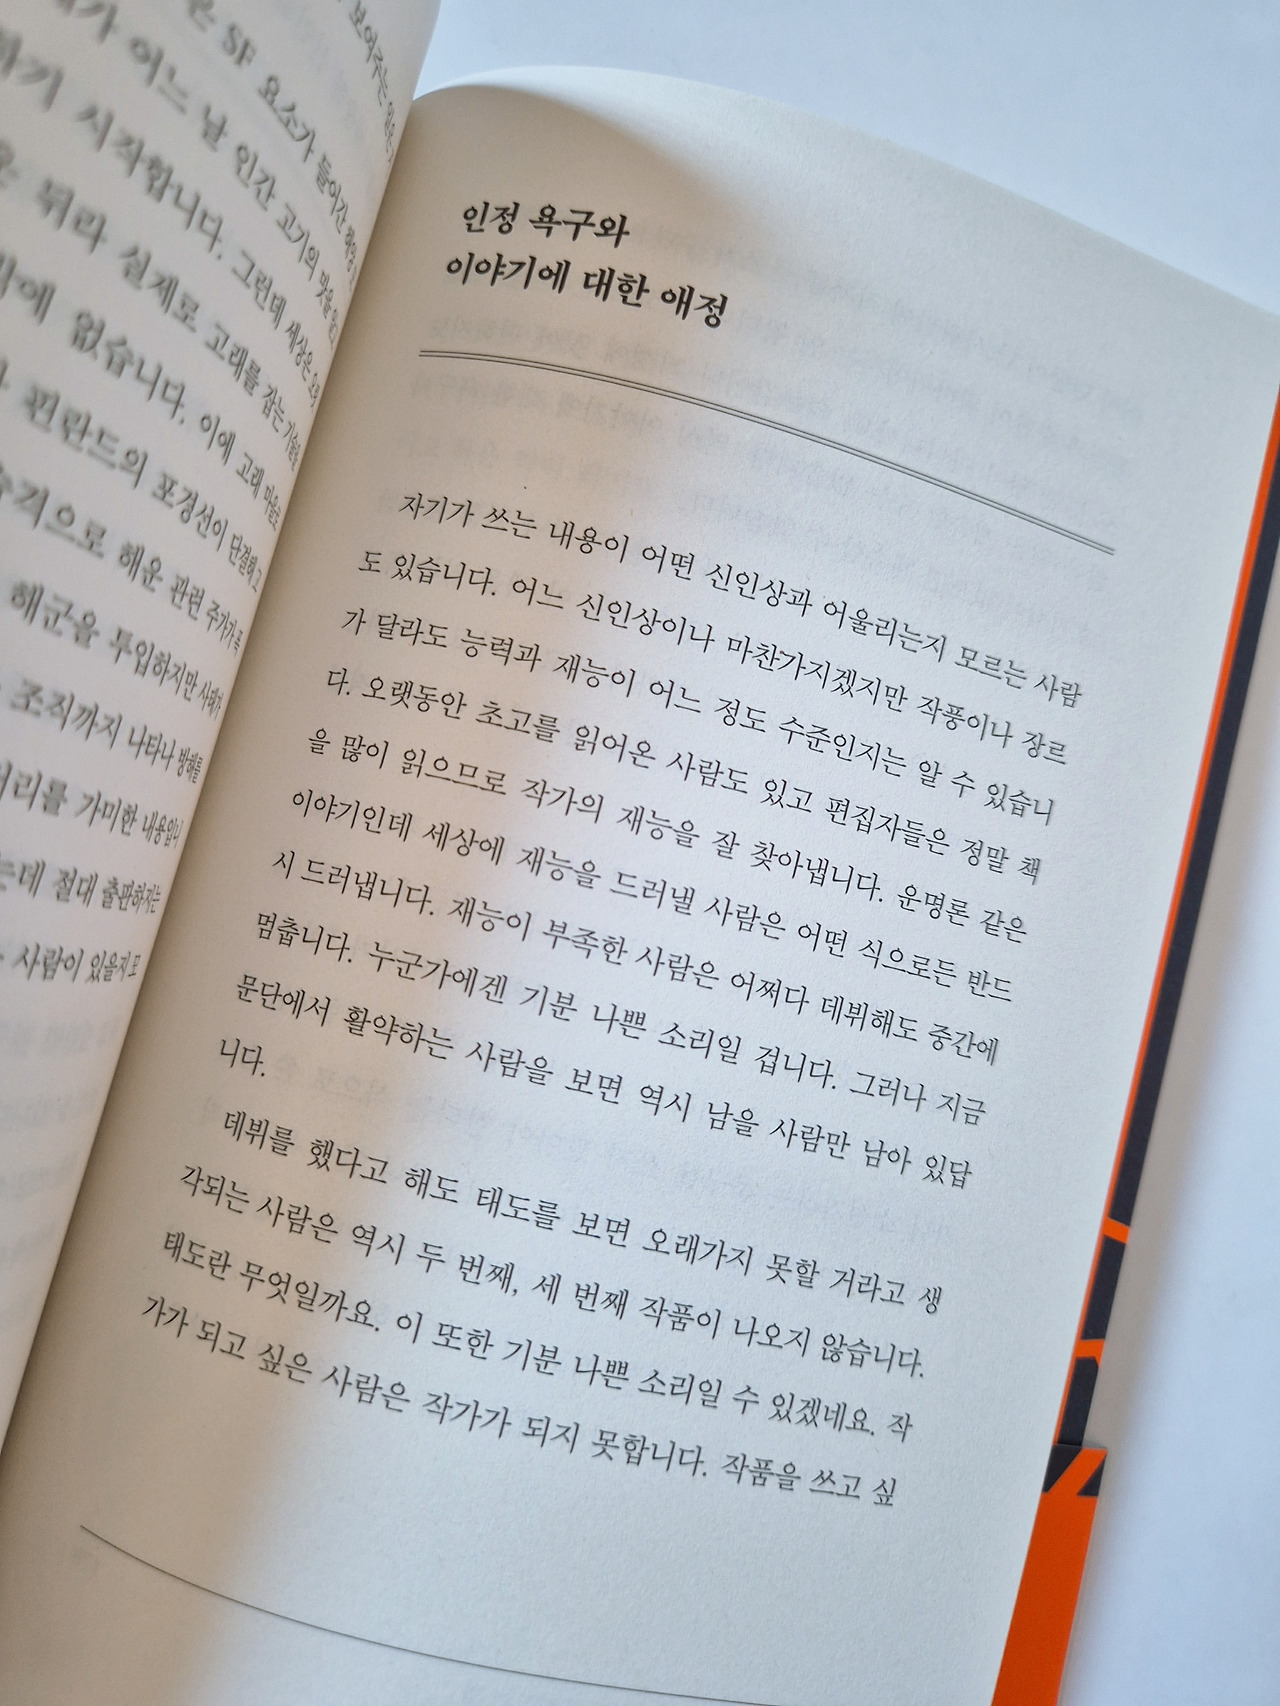 보여주는 일은
SF 요소가 들어간 해양
가 어느 날 인간 고기의 맛을
하기 시작합니다. 그런데 세상은
뭐라 실제로 고래를 잡는 기술
없습니다. 이에 고래 마을
핀란드의 포경선이 단결하고
습격으로 해운 관련 주가가 폭
해군을 투입하지만 사태가
조직까지 나타나 방해를
머리를 가미한 내용입니
는데 절대 출판하자는
사람이 있을지 모
인정 욕구와
이야기에 대한 애정
자기가 쓰는 내용이 어떤 신인상과 어울리는지 모르는 사람
도 있습니다. 어느 신인상이나 마찬가지겠지만 작풍이나 장르
가 달라도 능력과 재능이 어느 정도 수준인지는 알 수 있습니
다. 오랫동안 초고를 읽어온 사람도 있고 편집자들은 정말 책
을 많이 읽으므로 작가의 재능을 잘 찾아냅니다. 운명론 같은
이야기인데 세상에 재능을 드러낼 사람은 어떤 식으로든 반드
시 드러냅니다. 재능이 부족한 사람은 어쩌다 데뷔해도 중간에
멈춥니다. 누군가에겐 기분 나쁜 소리일 겁니다. 그러나 지금
문단에서 활약하는 사람을 보면 역시 남을 사람만 남아 있답
니다.
데뷔를 했다고 해도 태도를 보면 오래가지 못할 거라고 생
각되는 사람은 역시 두 번째, 세 번째 작품이 나오지 않습니다.
태도란 무엇일까요. 이 또한 기분 나쁜 소리일 수 있겠네요. 작
가가 되고 싶은 사람은 작가가 되지 못합니다. 작품을 쓰고 싶